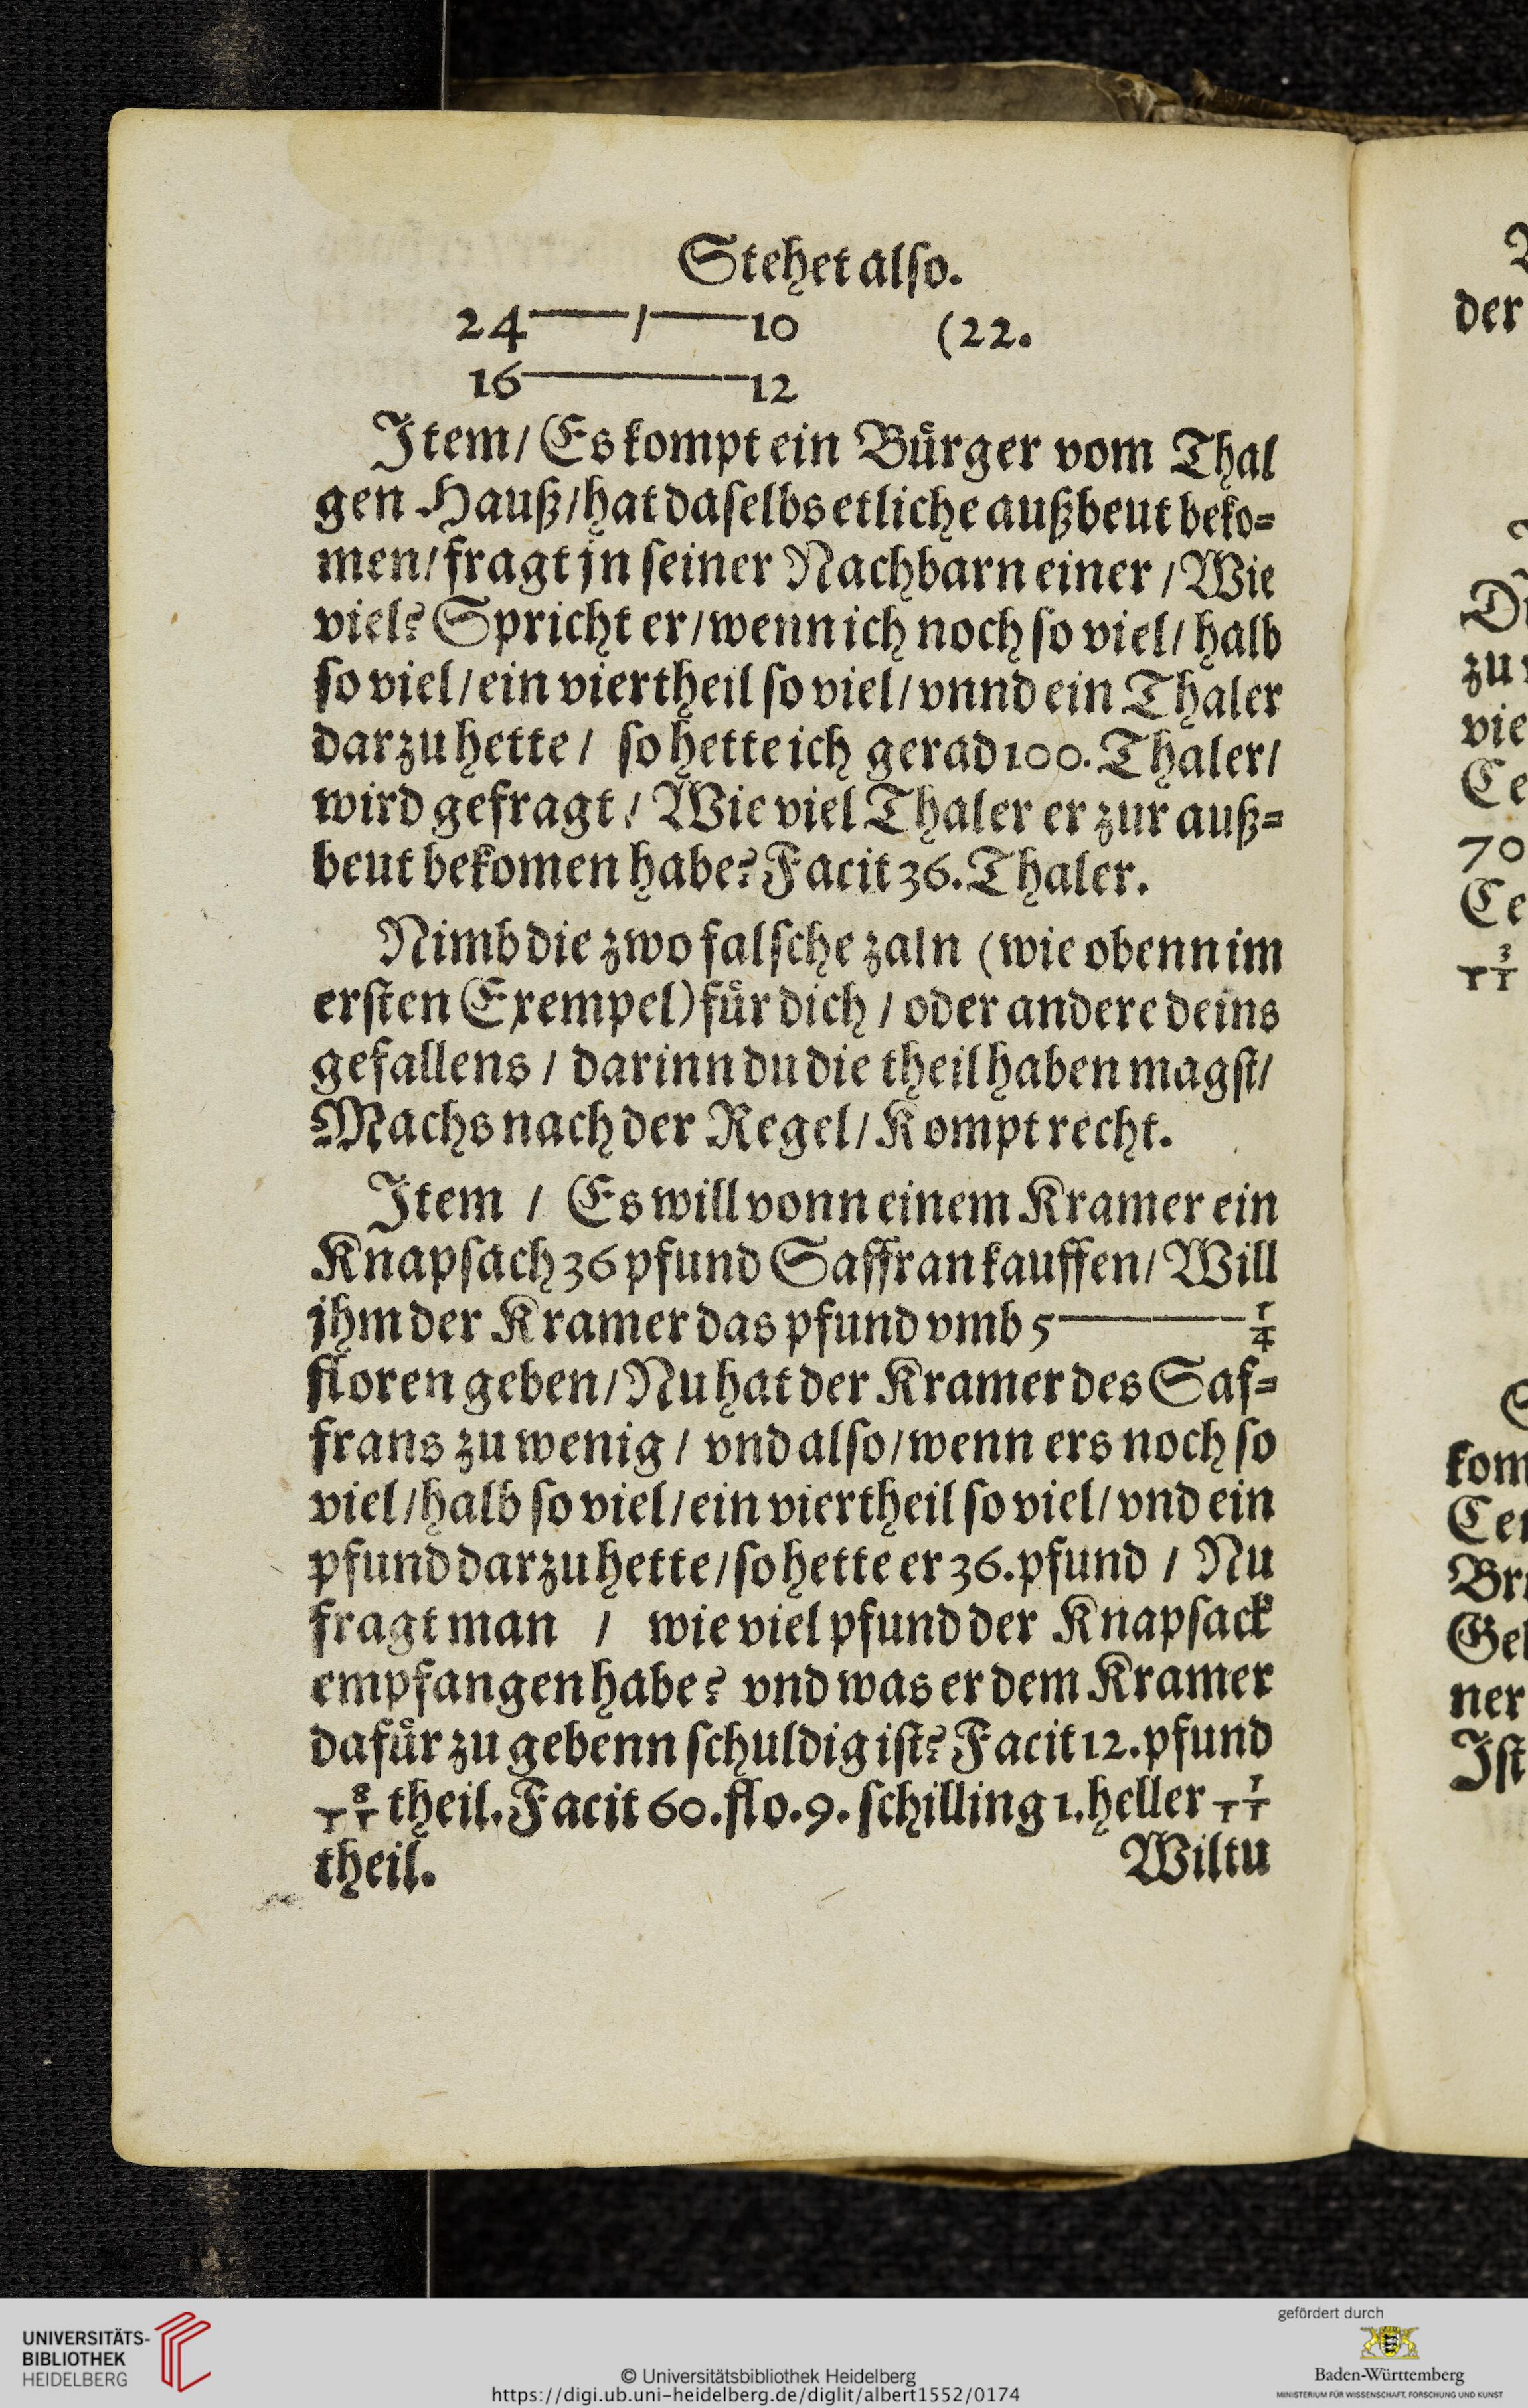 Stehet also.
24——/——10 (22.
16————12
Item/ Es kompt ein Bürger vom Thal
gen Hauß/ hat daselbs etliche außbeut beko=
men/ fragt jn seiner Nachbarn einer / Wie
viel? Spricht er/ wenn ich noch so viel/ halb
so viel/ ein viertheil so viel/ vnnd ein Thaler
darzu hette / so hette ich gerad 100. Thaler/
wird gefragt / Wie viel Thaler er zur auß=
beut bekomen habe? Facit 36. Thaler.
Nimb die zwo falsche zaln (wie obenn im
ersten Exempel) für dich / oder andere deins
gefallens / darinn du die theil haben magst/
Machs nach der Regel/ Kompt recht.
Item / Es will vonn einem Kramer ein
Knapsach 36 pfund Saffran kauffen/ Will
jhm der Kramer das pfund vmb 5———1/4
floren geben/ Nu hat der Kramer des Saf=
frans zu wenig / vnd also/ wenn ers noch so
viel/ halb so viel/ ein viertheil so viel/ vnd ein
pfund darzu hette/ so hette er 36. pfund / Nu
fragt man / wie viel pfund der Knapsack
empfangen habe? vnd was er dem Kramer
dafür zu gebenn schuldig ist? Facit 12. pfund
8/11 theil. Facit 60. flo. 9. schilling 1. heller 1/11
theil. Wiltu
A
der
Di
zu
vie
Ce
70
Ce
3/11
kom
Cen
Bru
Gel
ner
Ist
UNIVERSITÄTS-
BIBLIOTHEK
HEIDELBERG
© Universitätsbibliothek Heidelberg
https://digi.ub.uni-heidelberg.de/diglit/albert1552/0174
gefördert durch
Baden-Württemberg
MINISTERIUM FÜR WISSENSCHAFT, FORSCHUNG UND KUNST